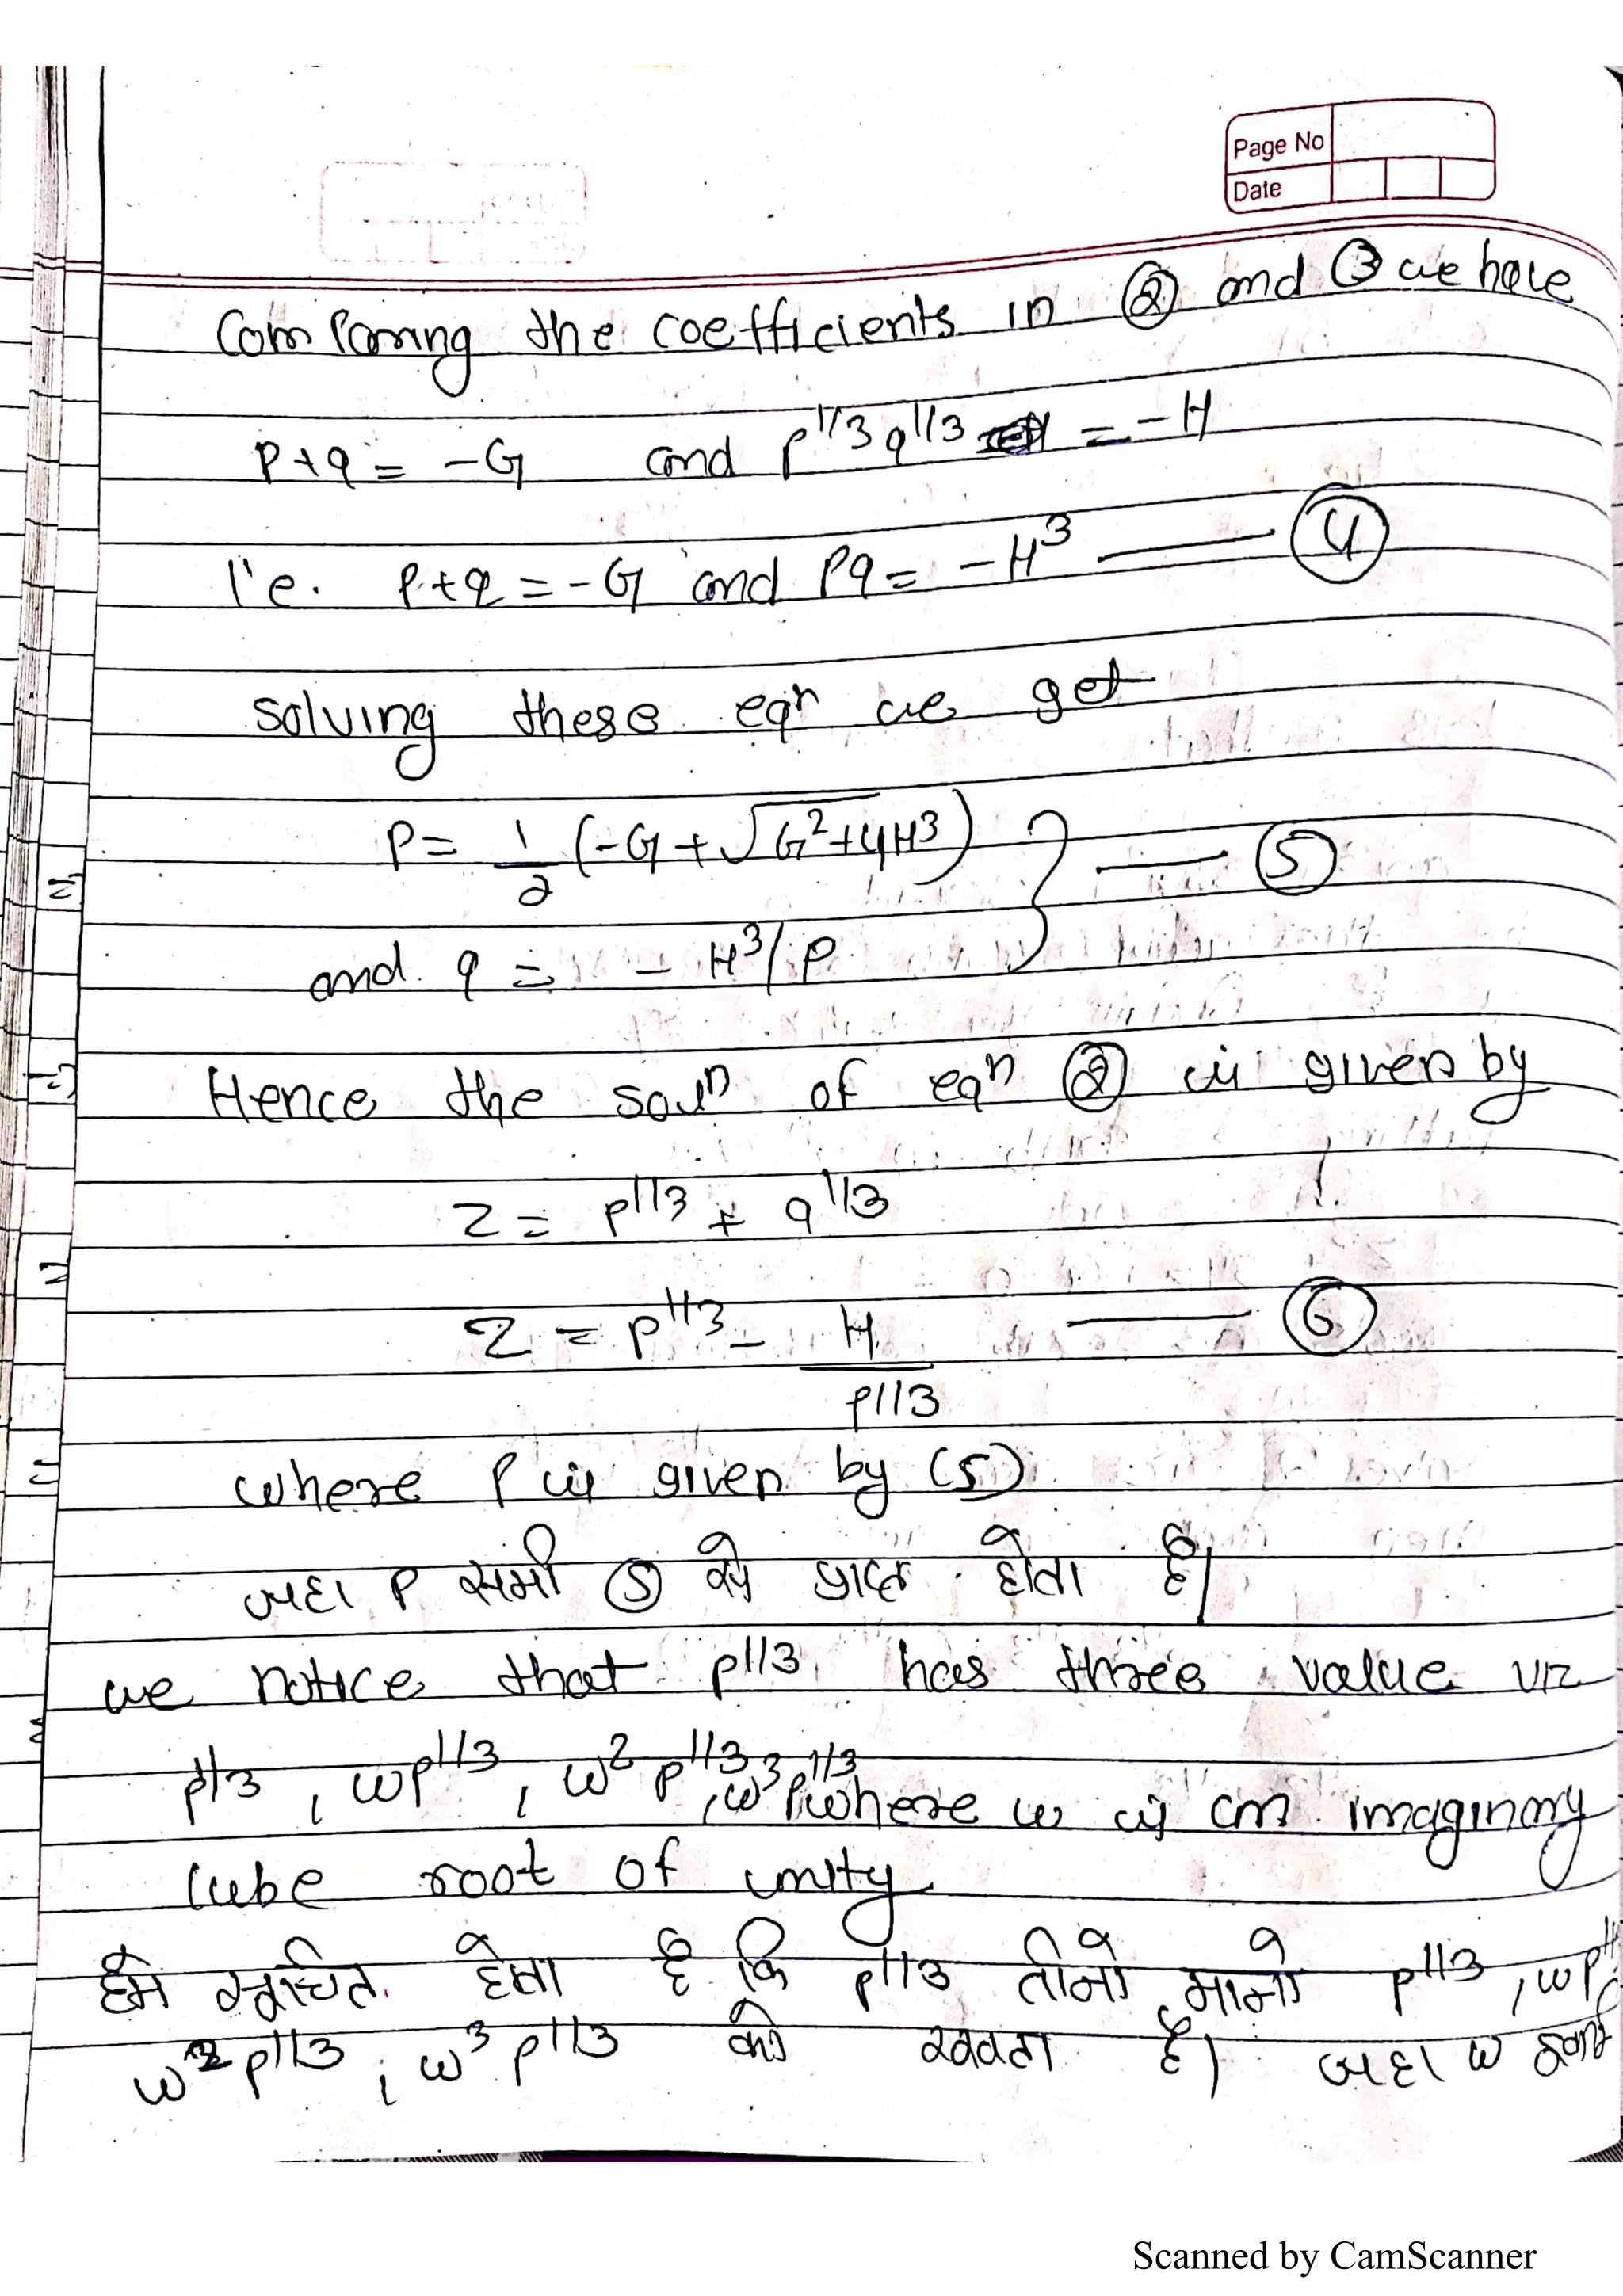 Page No
Date
Comparing the coefficients in ② and ③ we have
p+q = -G and p^1/3 q^1/3 = -H
i.e. p+q = -G and pq = -H³ —— ④
solving these eqn we get
p = 1/2 (-G + √G²+4H³)
and q = -H³/p } —— ⑤
Hence the soln of eqn ② is given by
z = p^1/3 + q^1/3
z = p^1/3 - H/p^1/3 —— ⑥
where p is given by (5)
जहा p समी ⑤ से प्राप्त होता है।
we notice that p^1/3 has three value viz
p^1/3, wp^1/3, w²p^1/3, w³p^1/3 where w is an imaginary
cube root of unity
हमे सूचित होता है कि p^1/3 तीनो मानो p^1/3, wp^1/
w²p^1/3, w³p^1/3 को रखता है। जहा w
Scanned by CamScanner